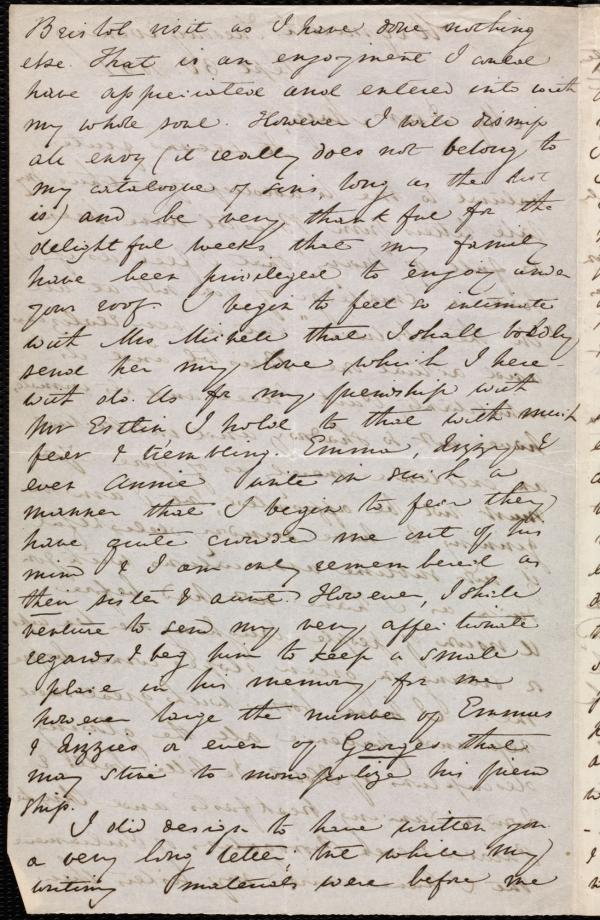 Bristol visit as I have done nothing
else. That is an enjoyment I could
have appreciated and entered into with
my whole soul. However I will dismiss
all envy (it really does not belong to
my catalogue of sins, long as the list
is) and be very thankful for the
delightful weeks that my family
have been privileged to enjoy under
your roof. I begin to feel so intimate
with Mrs Michell that I shall boldly
send her my love, which I here-
with do. As for my friendship with
Mr Estlin I hold to that with much
fear & trembling. Emma, Lizzy, &
even Annie write in such a
manner that I begin to fear they
have quite crowded me out of his
mind & I am only remembered as
their sister & aunt. However, I shall
venture to send my very affectionate
regards & beg him to keep a small
place in his memory for me
however large the number of Emmas
& Lizzies or even of Georges that
may strive to monopolize his friend
ship.
I did design to have written you
a very long letter, but while my
writing materials were before me